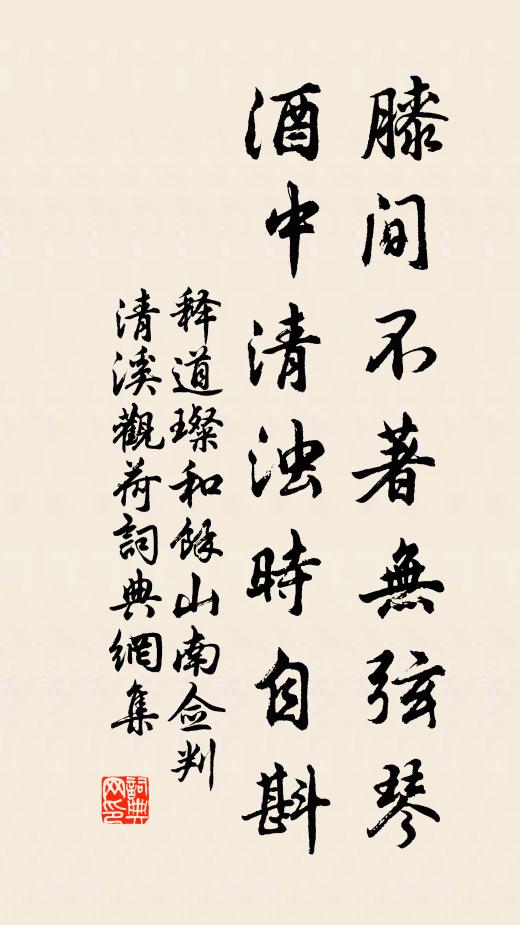 膝间不著無弦琴
酒中清浊時自斟
释道璨和餘山南佥判
清溪觀荷詞典網集
詞典网印